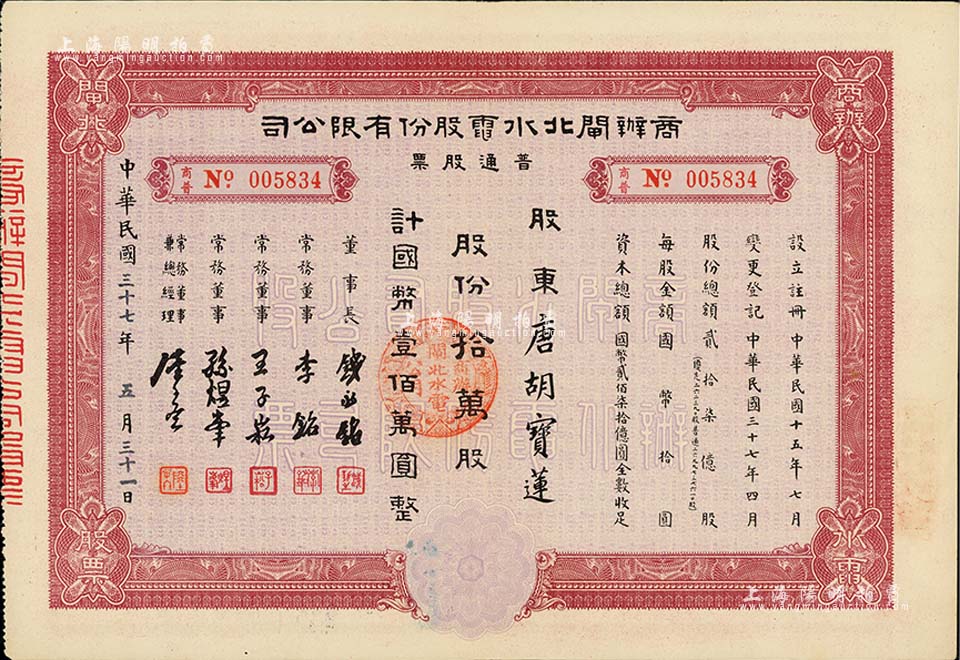 上海陽明拍賣
www.yangmingauction.com
商辦
閘北
水電
股票
商辦閘北水電股份有限公司
普通股票
商普 No. 005834
商普 No. 005834
設立註冊 中華民國十五年七月
變更登記 中華民國三十七年四月
股份總額貳拾柒億股
每股金額國幣拾圓
資本總額國幣貳佰柒拾億圓全數收足
股東唐胡寶蓮
股份拾萬股
計國幣壹佰萬圓整
董事長 錢永銘
常務董事 李銘
常務董事 王子崧
常務董事 孫煜峯
常務董事兼總經理
中華民國三十七年 五月三十一日
上海陽明拍賣
www.yangmingauction.com
上海陽明拍賣
www.yangmingauction.com